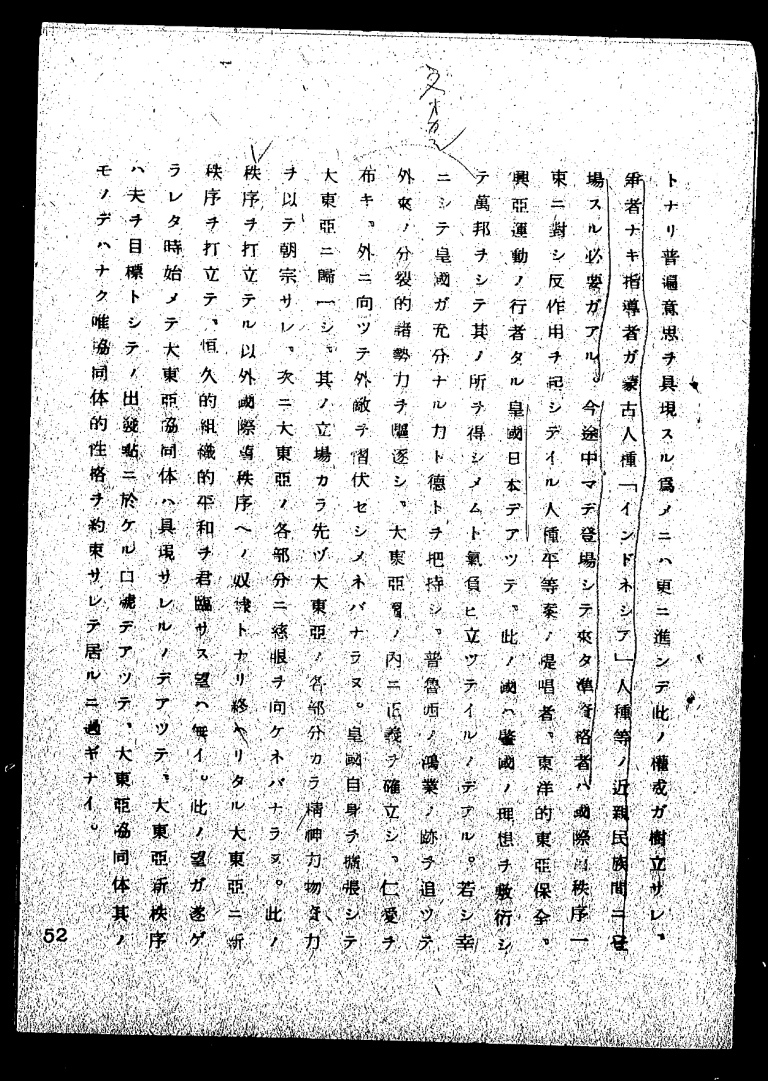 トナリ普遍意思ヲ具現スル爲メニハ更ニ進ンデ此ノ權威ガ樹立サレ、
第者ナキ指導者ガ蒙古人種「インドネシア」人種等ノ近親民族間ニ登
場スル必要ガアル。今途中マデ登場シテ來タ準資格者ハ國際舊秩序一
東ニ對シ反作用ヲ起シテイル人種平等案ノ提唱者、東洋的東亞保全、
興亞運動ノ行者タル皇國日本デアツテ、此ノ國ハ肇國ノ理想ヲ敷衍シ
テ萬邦ヲシテ其ノ所ヲ得シメムト氣負ヒ立ツテイルノデアル。若シ幸
ニシテ皇國ガ充分ナル力ト德トヲ把持シ、普魯西ノ鴻業ノ跡ヲ追ツテ
外來ノ分裂的諸勢力ヲ驅逐シ、大東亞ノ内ニ正義ヲ確立シ、仁愛ヲ
布キ、外ニ向ツテ外敵ヲ慴伏セシメネバナラヌ。皇國自身ヲ擴張シテ
大東亞ニ歸一シ、其ノ立場カラ先ヅ大東亞ノ各部分カラ精神力物資力
ヲ以テ朝宗サレ、次ニ大東亞ノ各部分ニ慈眼ヲ向ケネバナラヌ。此ノ
秩序ヲ打立テル以外國際舊秩序ヘノ奴隷トナリ終ヘリタル大東亞ニ新
秩序ヲ打立テ、恒久的組織的平和ヲ君臨サス望ハ無イ。此ノ望ガ遂ゲ
ラレタ時始メテ大東亞協同体ハ具現サレルノデアツテ、大東亞新秩序
ハ夫ヲ目標トシテノ出發點ニ於ケル口號デアツテ、大東亞協同体其ノ
モノデハナク唯協同体的性格ヲ約束サレテ居ルニ過ギナイ。
52